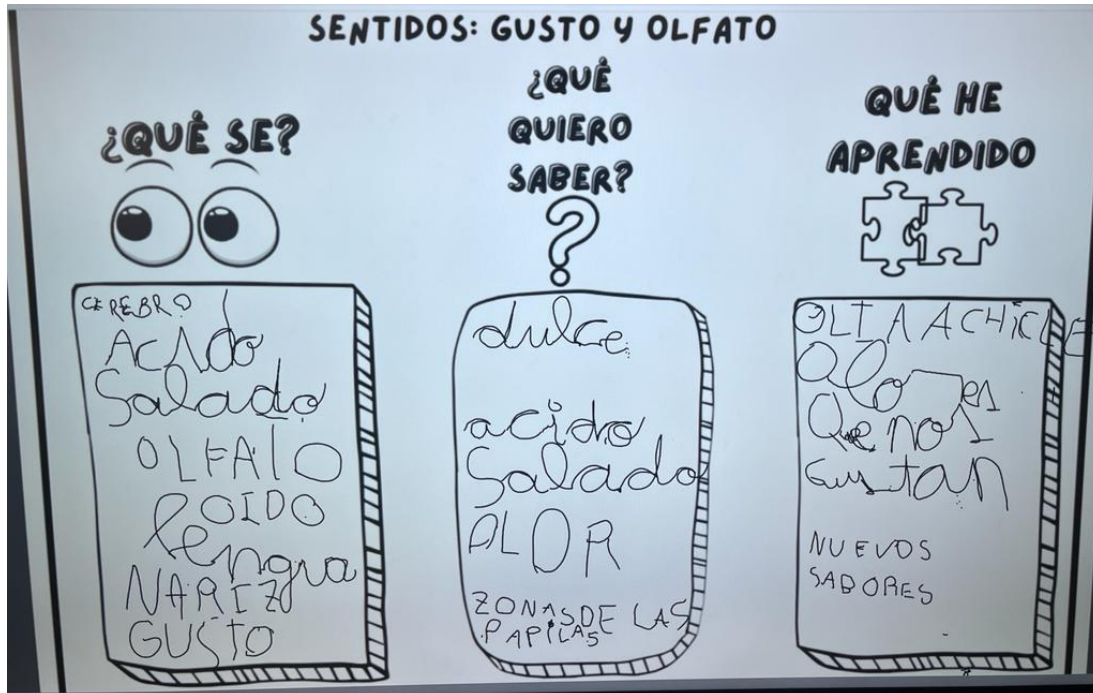 SENTIDOS: GUSTO Y OLFATO
¿QUÉ SE?
CEREBRO
Acido
Salado
OLFATO
OIDO
lengua
NARIZ
GUSTO
¿QUÉ
QUIERO
SABER?
dulce
acido
Salado
OLOR
ZONAS DE LAS
PAPILAS
QUÉ HE
APRENDIDO
OLIA A CHICLE
Olores
Que nos
Gustan
NUEVOS
SABORES